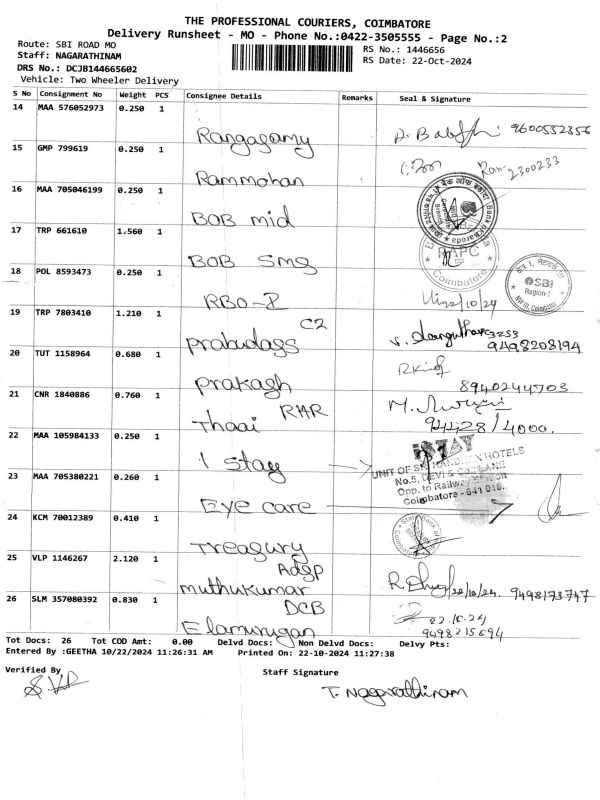 THE PROFESSIONAL COURIERS, COIMBATORE
Delivery Runsheet - MO - Phone No.:0422-3505555 - Page No.:2
Route: SBI ROAD MO
RS No.: 1446656
Staff: NAGARATHINAM
RS Date: 22-Oct-2024
DRS No.: DCJB144665602
Vehicle: Two Wheeler Delivery
S No Consignment No Weight PCS Consignee Details Remarks Seal & Signature
14 MAA 576052973 0.250 1
Rangasamy 9600552356
15 GMP 799619 0.250 1
Rammohan 2300233
16 MAA 705046199 0.250 1
BOB mid
17 TRP 661610 1.560 1
BOB Smg
RACPC
Coimbatore
18 POL 8593473 0.250 1
RBO-I 22/10/24
SBI
Region-I
19 TRP 7803410 1.210 1
C2
Prabudass 9498208194
20 TUT 1158964 0.680 1
Prakash 8940244703
21 CNR 1840886 0.760 1
RHR
Thaai 94428/4000.
22 MAA 105984133 0.250 1
I stay
iSTAY
UNIT OF HOTELS
No.5, DEVI & CO., LANE
Opp. to Railway Station
Coimbatore - 641 018.
23 MAA 705380221 0.260 1
Eye care
24 KCM 70012389 0.410 1
Treasury
25 VLP 1146267 2.120 1
Adsp
Muthukumar 22/10/24. 9498173747
26 SLM 357080392 0.830 1
DCB
Elamurugan 22.10.24
9498215694
Tot Docs: 26 Tot COD Amt: 0.00 Delvd Docs: Non Delvd Docs: Delvy Pts:
Entered By :GEETHA 10/22/2024 11:26:31 AM Printed On: 22-10-2024 11:27:38
Verified By
Staff Signature
T. Nagarathinam